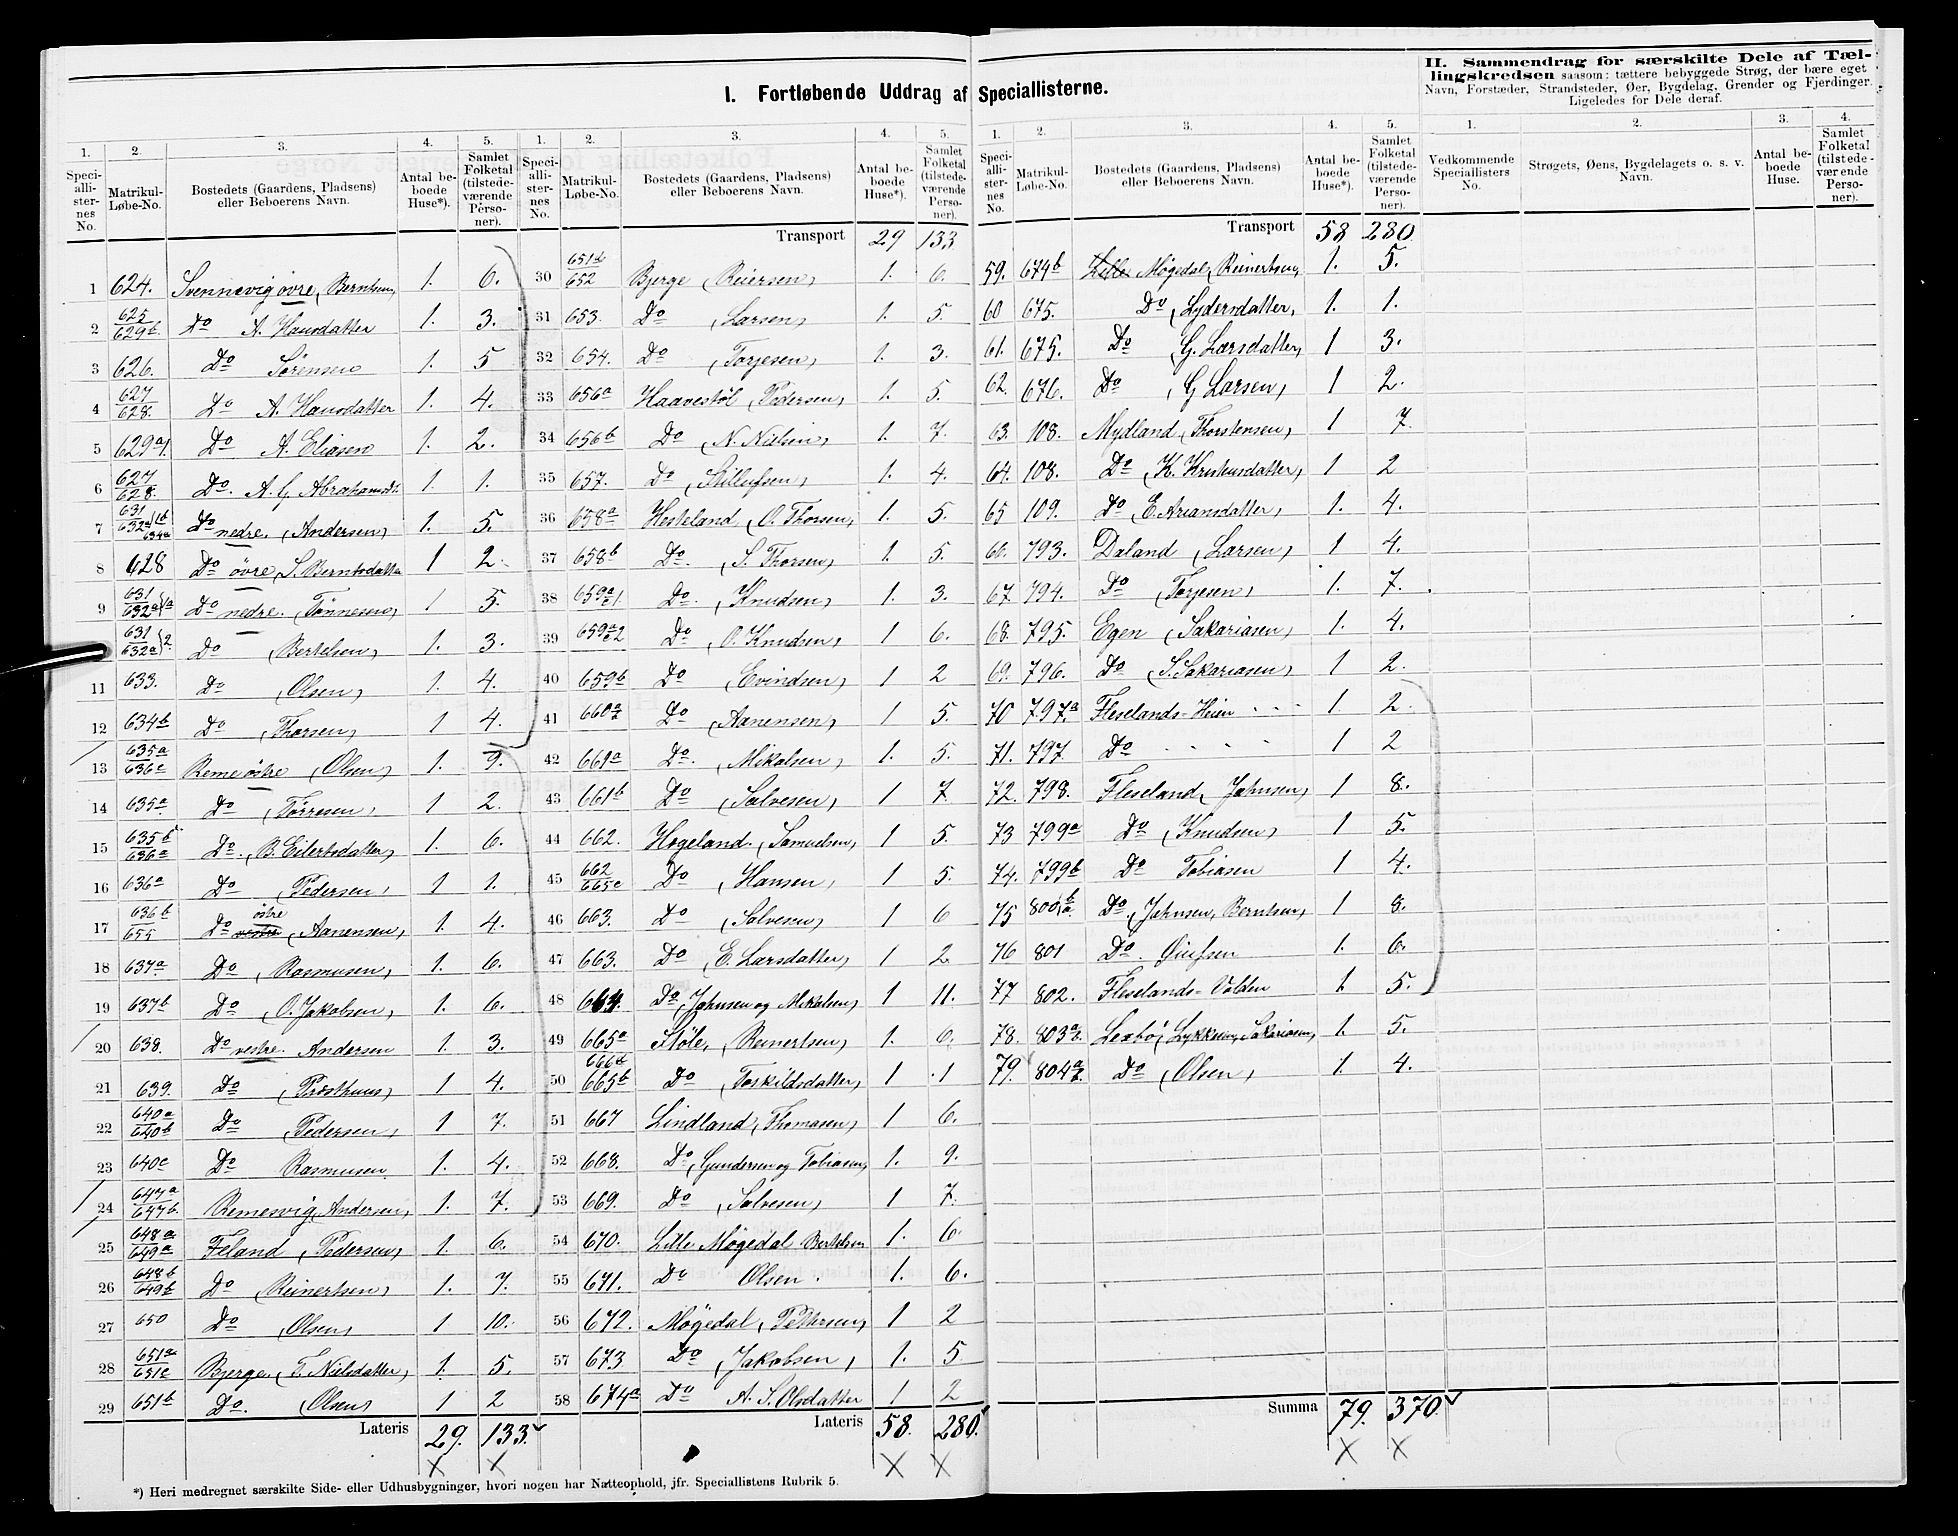 I. Fortløbende Uddrag af Speciallisterne.
II. Sammendrag for særskilte Dele af Tællingskredsen saasom: tættere bebyggede Strøg, der bære eget
Navn, Forstæder, Strandsteder, Øer, Bygdelag, Grender og Fjerdinger.
Ligeledes for Dele deraf.
1. Speciallisternes No.
2. Matrikul-Løbe-No.
3. Bostedets (Gaardens, Pladsens) eller Beboerens Navn.
4. Antal beboede Huse*).
5. Samlet Folketal (tilstedeværende Personer).
1 624. Svennevig övre, Berntsen, 1. 6.
2 625/629b. Do A. Hansdatter 1. 3.
3 626. Do Sörensen 1. 5
4 627/628. Do A. Hansdatter 1. 4.
5 629a1. Do A. Eliasen 1. 2.
6 627/628. Do. A. G. Abrahamsdt. 1 1.
7 631/632a 1b 634a Do nedre, (Andersen) 1. 5.
8 628 Do övre, S. Berntsdatter 1 2.
9 631/632a 1a Do nedre. (Tönnesen) 1 5.
631/632a 2. Do (Bertelsen) 1. 3.
11 633. Do (Olsen) 1. 4.
12 634b Do (Thorsen) 1 4.
13 635a/636c Reme östre (Olsen) 1. 9.
14 635a Do (Törresen) 1 2.
15 635b/636a Do. (B. Eilertsdatter) 1. 6.
16 636a Do (Pedersen) 1 1.
17 636b/655 Do östre vestre (Aanensen) 1. 4.
18 637a Do (Rasmusen) 1. 6.
19 637b Do (O. Jakobsen) 1. 6.
20 638. Do vestre. Andersen 1. 3.
21 639. Do (Præsthuus) 1 4.
22 640a/640b Do (Pedersen) 1 7.
23 640c Do Rasmusen 1. 4.
24 647a/647b. Remesvig, Andersen, 1. 7.
25 648a/649a Feland (Pedersen) 1. 6.
26 648b/649b Do (Reinertsen) 1. 7.
27 650 Do (Olsen) 1 10.
28 651a/651c Bjerge (T. Nielsdatter) 1. 5.
29 651b Do. (Olsen) 1 2
Lateris 29. 133.
1. Speciallisternes No.
2. Matrikul-Løbe-No.
3. Bostedets (Gaardens, Pladsens) eller Beboerens Navn.
4. Antal beboede Huse*).
5. Samlet Folketal (tilstedeværende Personer).
Transport 29 133
30 651d/652 Bjerge (Reiersen) 1. 6.
31 653. Do (Larsen) 1. 5.
32 654. Do (Torjesen) 1. 3.
33 656a Haavestöl (Pedersen) 1. 5.
34 656b Do (N. Nilsen) 1. 7.
35 657. Do 1. 4.
36 658a Hesteland (O. Thorsen) 1. 5.
37 658b Do. (S. Thorsen) 1 5
38 659a/c1. Do. (Knudsen) 1. 3.
39 659a/c2 Do (O. Knudsen) 1 6.
40 659b Do (Evindsen) 1 2
41 660a/2 Do (Aanensen) 1 5.
42 661a Do. (Mikalsen) 1. 5.
43 661b Do (Salvesen) 1 7.
44 662. Hogeland. (Samuelsen) 1 5.
45 662/665c Do (Hansen) 1 5.
46 663. Do (Salvesen) 1 6
47 663. Do (E. Larsdatter) 1 2.
48 664. Do (Jahnsen og Mikalsen) 1 11.
49 665a Stöle, (Reinertsen) 1. 6.
50 666d/665b Do (Toskildsdatter) 1 1
51 667 Lindland (Thomasen) 1 6.
52 668. Do (Gundersen og Tobiasen) 1. 9.
53 669. Do (Salvesen) 1 7.
54 670. Lille Mögedal Bertelsen 1. 6.
55 671. Do Olsen. 1. 6.
56 672. Mögedal (Pettersen) 1 2
57 673 Do (Jakobsen) 1. 5
58 674a Do A. S. Olsdatter 1 2
Lateris 58. 280.
1. Speciallisternes No.
2. Matrikul-Løbe-No.
3. Bostedets (Gaardens, Pladsens) eller Beboerens Navn.
4. Antal beboede Huse*).
5. Samlet Folketal (tilstedeværende Personer).
Transport 58 280
59. 674b Lille Mögedal (Reinertsen) 1. 5.
60 675. Do (Lydersdatter) 1. 1.
61. 675. Do (G. Larsdatter) 1 3.
62. 676. Do (G Larsen) 1 2.
63. 108. Mydland (Thorstensen) 1 7.
64. 108. Do (K. Kristensdatter) 1 2
65 109. Do (E. Ariansdatter) 1. 4.
66. 793. Daland (Larsen) 1 4.
67. 794. Do (Torjesen) 1. 7.
68. 795. Egen (Sakariasen) 1. 4.
69. 796. Do (S. Sakariasen) 1 2.
70 797a. Fleselands-Heien 1 2.
71. 797. Do 1 2
72. 798. Fleseland (Jahnsen) 1 8.
73 799a Do (Knudsen) 1 5.
74. 799b Do Tobiasen 1 4.
75 800 b/a. Do (Jahnsen, Berntsen) 1 8.
76 801 Do. 1. 6.
77 802. Fleselands-Valden 1. 5.
78. 803 a/b. Lexbö, Lykken, Sakariasen, 1. 5.
79. 804 a/b. Do (Olsen) 1. 4.
Summa 79. 370.
1. Vedkommende Speciallisters No.
2. Strøgets, Øens, Bygdelagets o. s. v. Navn.
3. Antal beboede Huse.
4. Samlet Folketal (tilstedeværende Personer).
*) Heri medregnet særskilte Side- eller Udhusbygninger, hvori nogen har Natteophold, jfr. Speciallistens Rubrik 5.